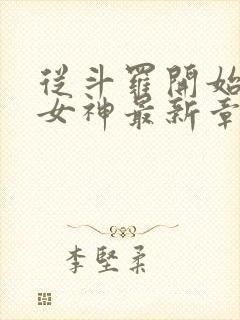 從斗羅開始
女神最新章
李堅柔